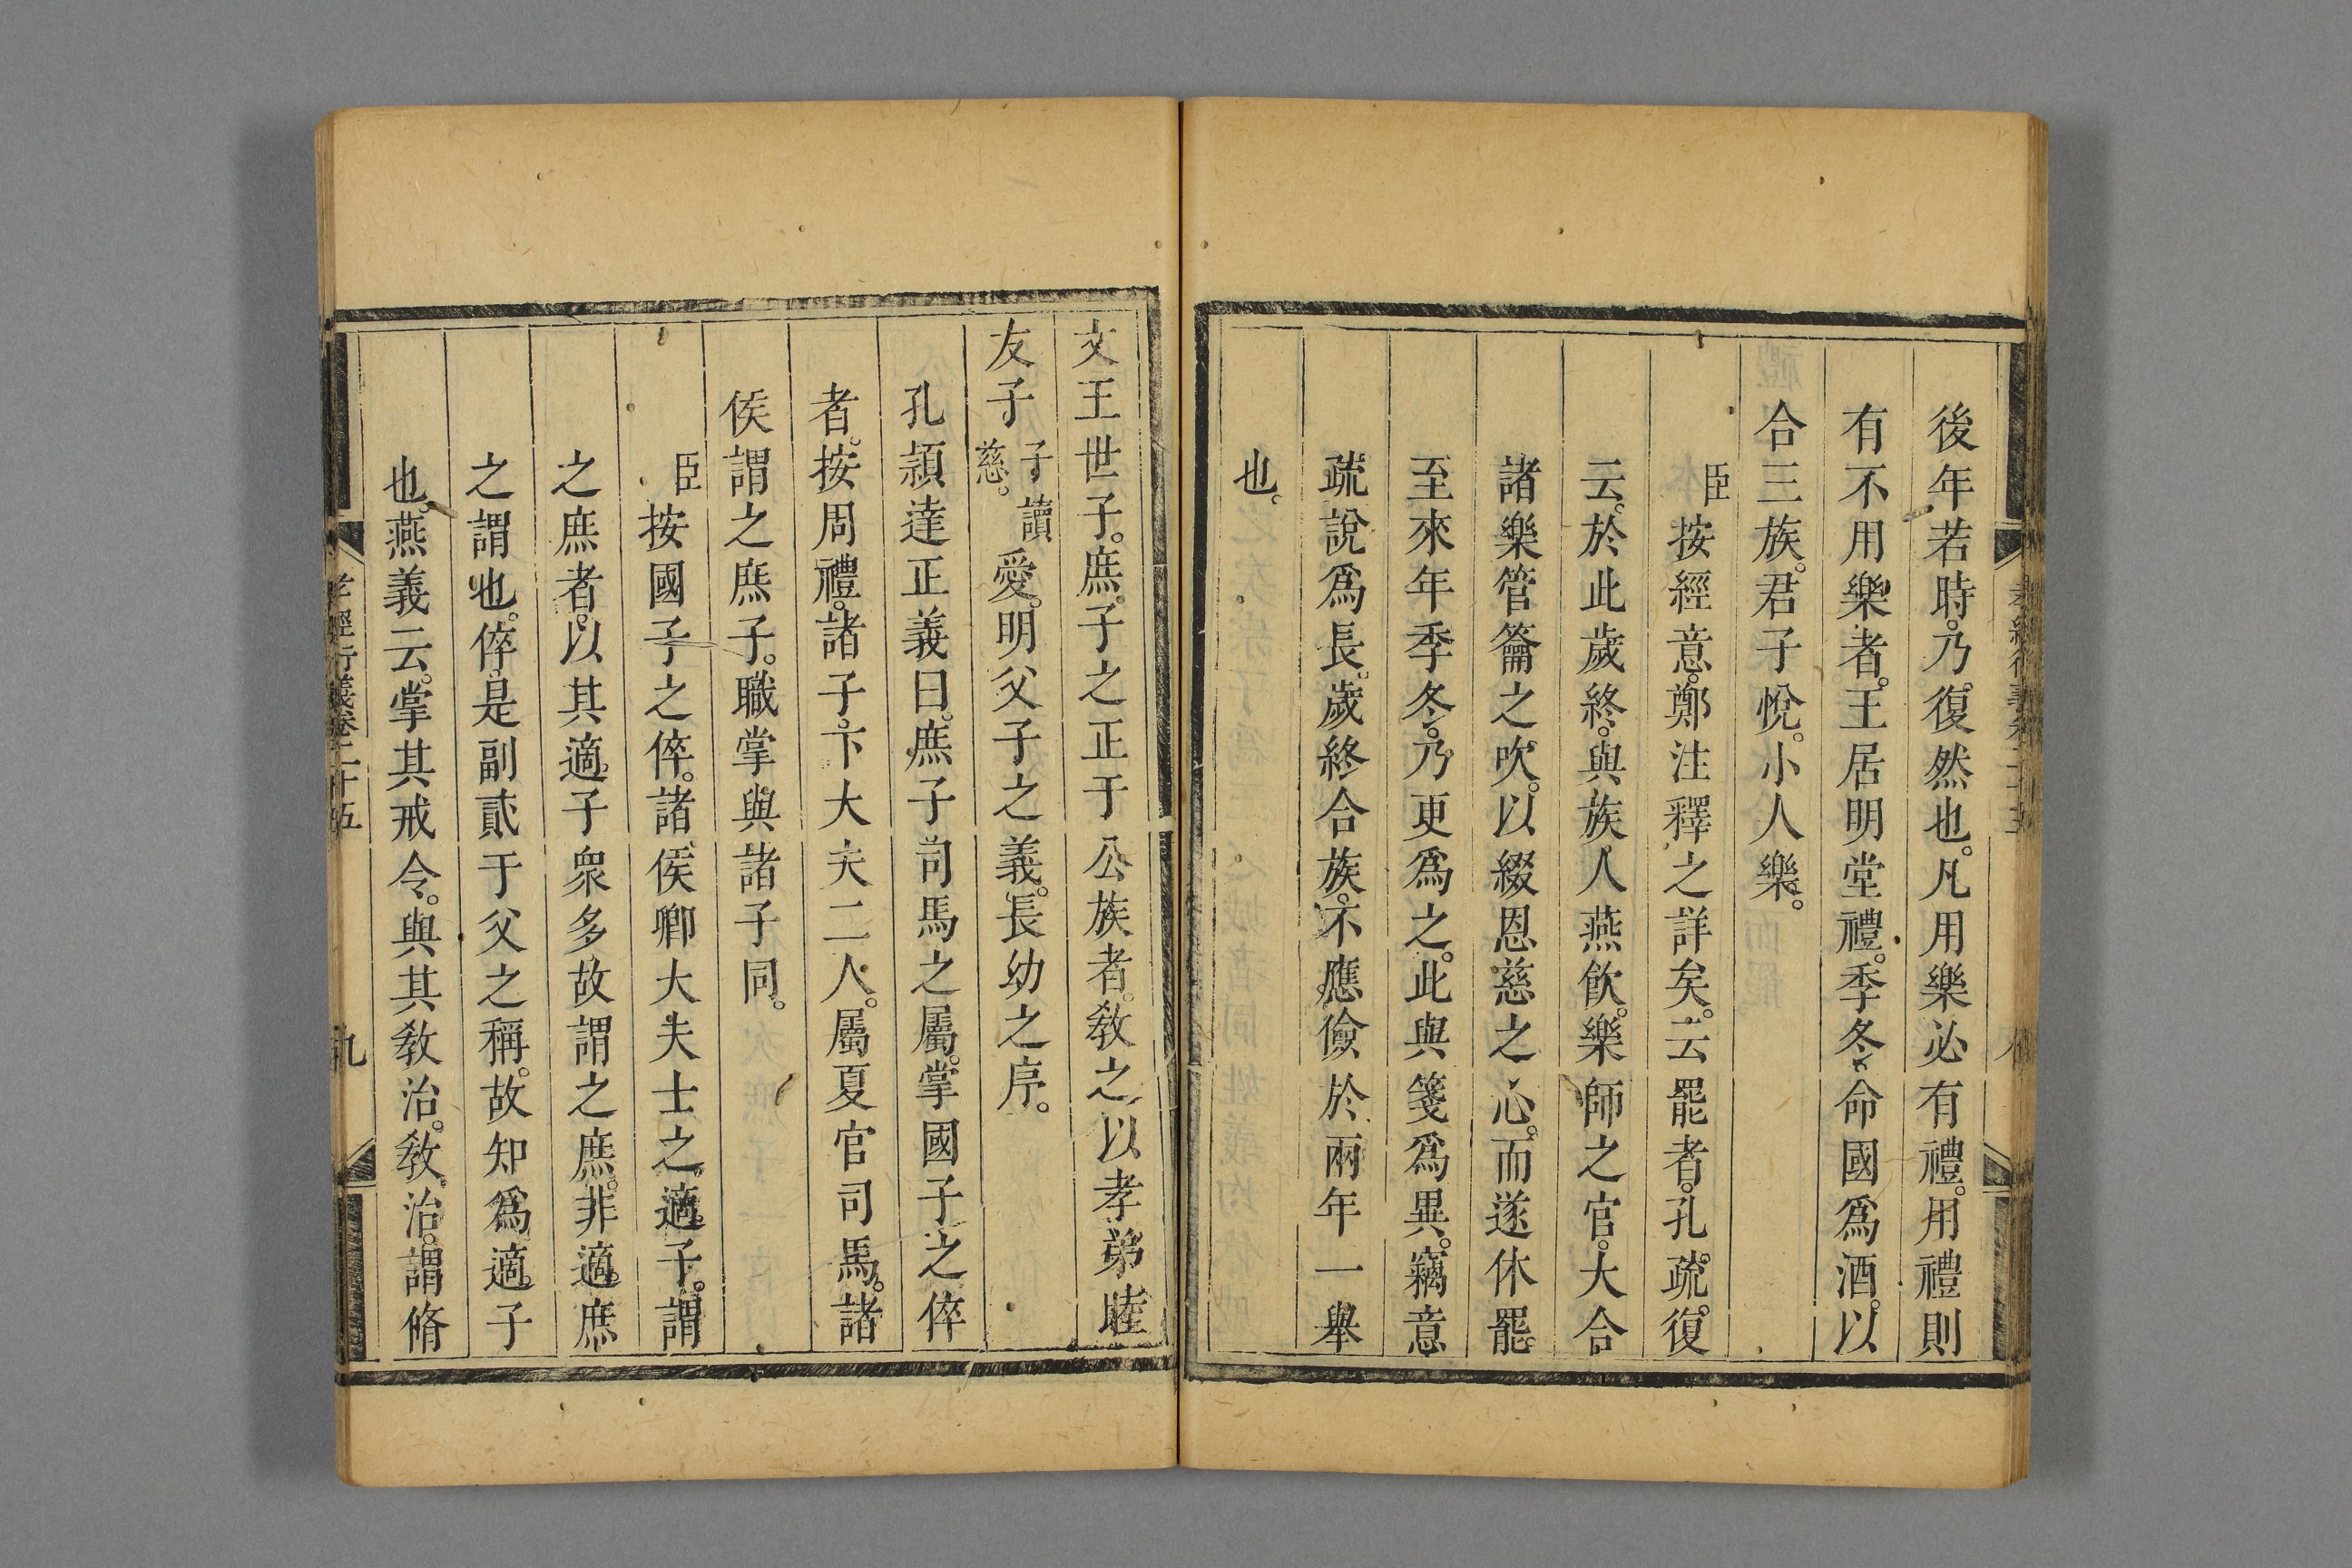 後年若時。乃復然也。凡用樂必有禮。用禮則
有不用樂者。王居明堂禮。季冬命國爲酒。以
合三族。君子悅。小人樂。
臣按經意。鄭注釋之詳矣。云罷者。孔疏。復
云。於此歲終。與族人燕飲。樂師之官。大合
諸樂管籥之吹。以綴恩慈之心。而遂休罷。
至來年季冬。乃更爲之。此與箋爲異。竊意
疏說爲長。歲終合族。不應儉於兩年一舉
也。
文王世子。庶子之正于公族者。教之以孝弟睦
友子子讀慈。愛。明父子之義。長幼之序。
孔頴達正義曰。庶子司馬之屬。掌國子之倅
者。按周禮。諸子。下大夫二人。屬夏官司馬。諸
侯謂之庶子。職掌與諸子同。
臣按國子之倅。諸侯卿大夫士之適子。謂
之庶者。以其適子衆多。故謂之庶。非適庶
之謂也。倅是副貳于父之稱。故知爲適子
也。燕義云。掌其戒令。與其敎治。敎治。謂脩
孝經衍義卷二十五
九